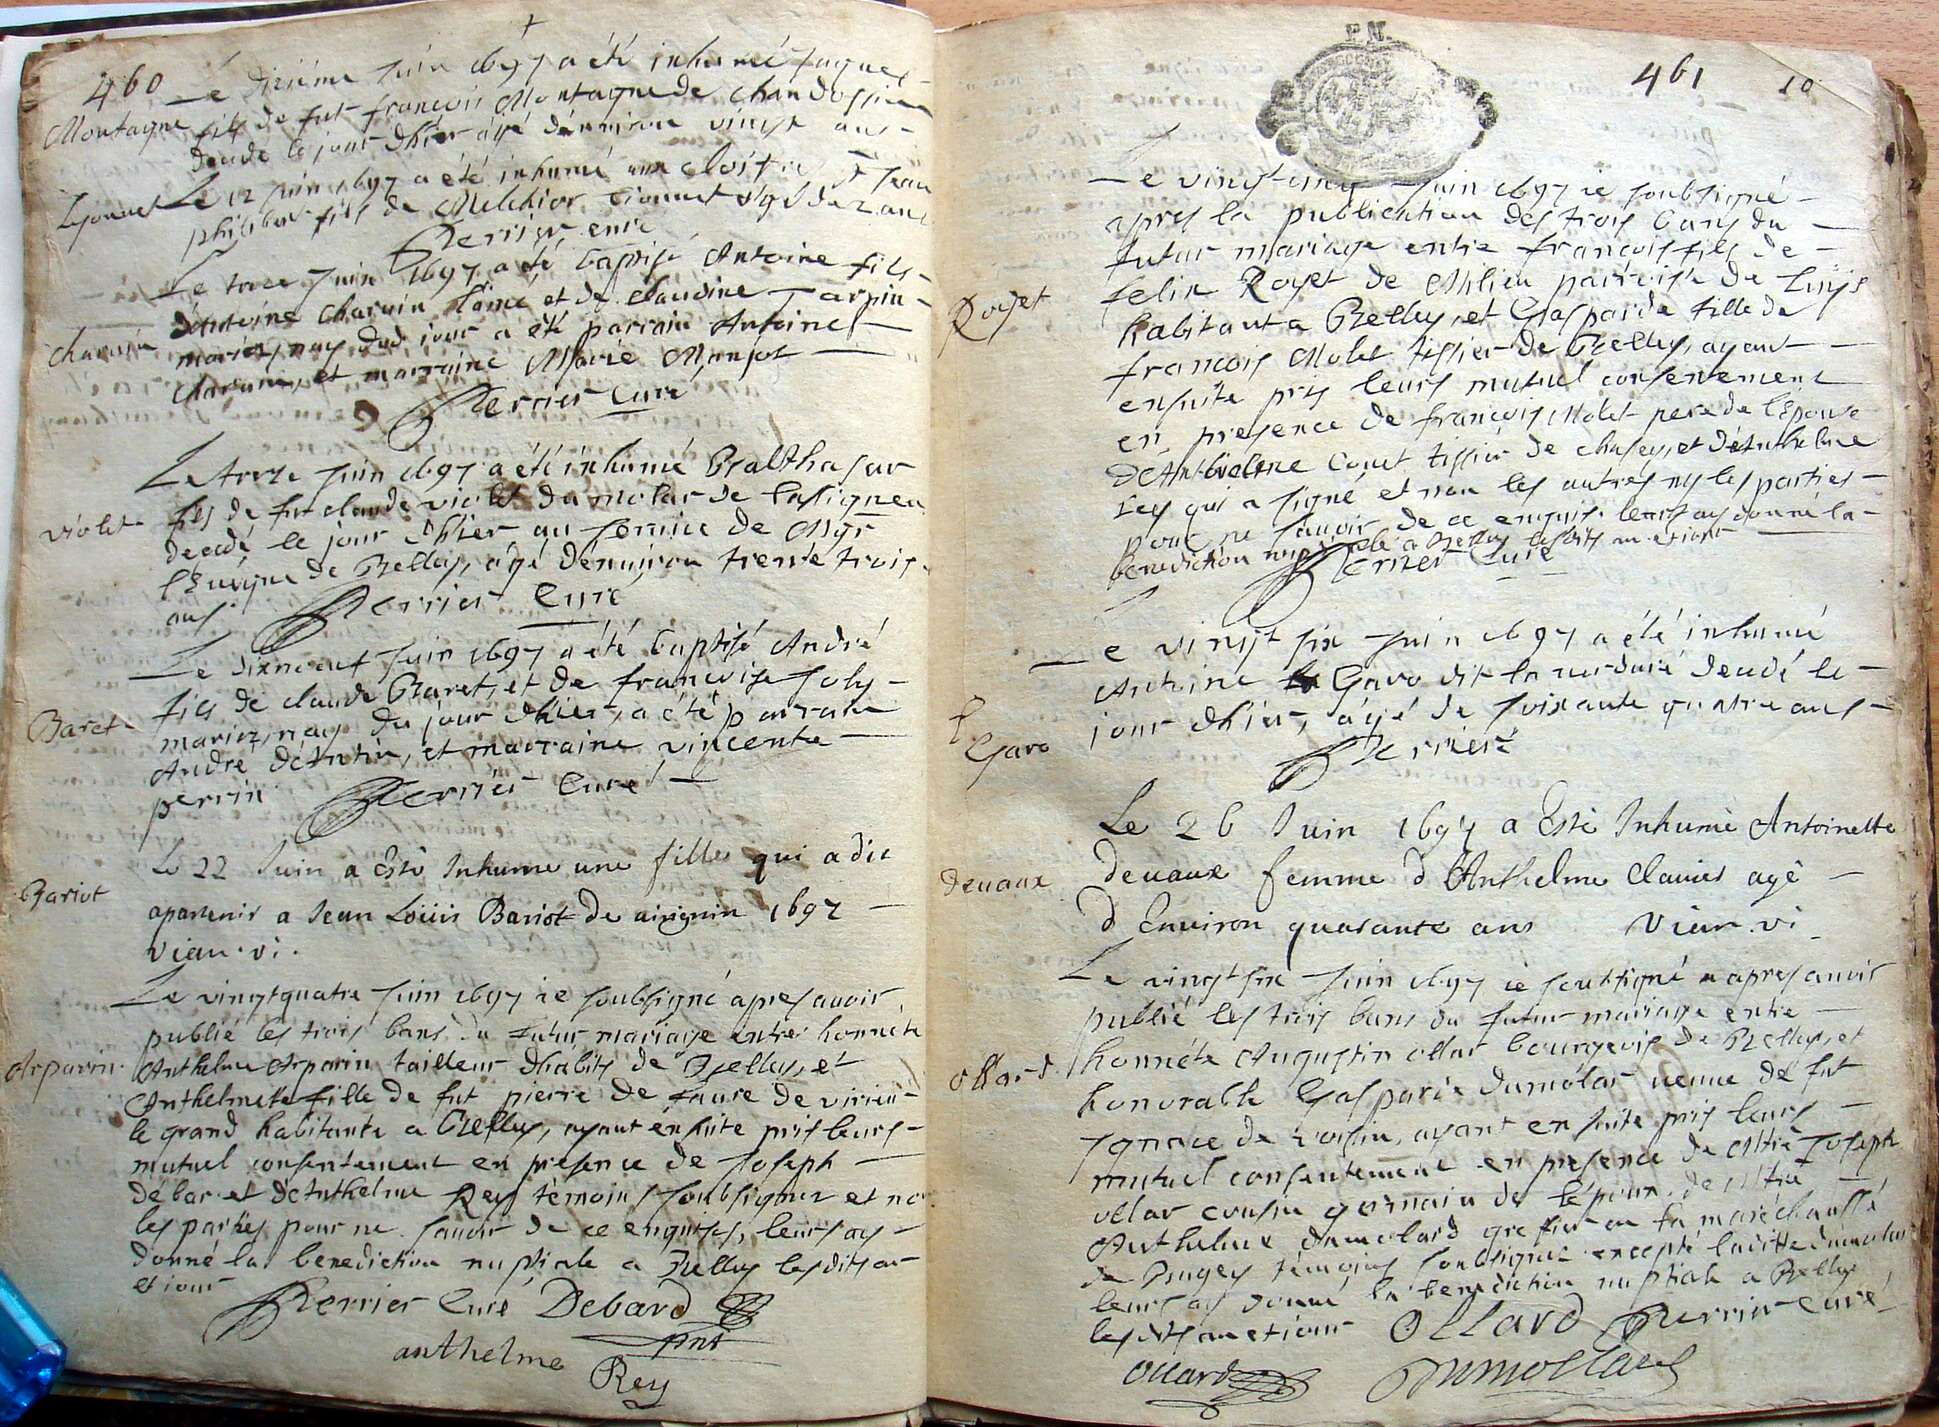 460
Le dixiéme Juin 1697 a été inhumé Jaques
Montagne
fils de fut francois Montagne de Chandossin
decede le jour dhier âgé denuiron vingt ans
Lyonnet
Le 12 juin 1697 a été inhumé aux cloitre Jean
philibert fils de Melchior Lionnet âgé de 2 ans
Perrier curé
Le treze Juin 1697 a été baptisé Antoine fils
Charuin
d'Antoine Charuin l'aîné et de Claudine Tarpin
mariez, nay dud jour a été parrain Antoine
Charuin, et marraine Marie Monjot
Perrier Curé
Le treze Juin 1697 a été inhumé Balthasar
Violet
fils de fut claude violet du molar de Lasigneu
decedé le jour dhier au seruice de Mgr
l'Eueque de Belley, âgé denuiron trente trois
ans
Perrier Curé
Le dixneuf Juin 1697 a été baptisé André
Baret
fils de claude Baret, et de francoise Joly
mariez, nay du jour dhier, a été parrain
André déAntin, et marraine vincente
perrin
Perrier Curé
Le 22 Juin a Esté Inhume une fille qui a dit
Bariot
apartenir a Jean Loüis Bariot de 1697
Vian. vi.
Le vingtquatre Juin 1697 ie soubsigné apres auoir
publié les trois bans du futur mariage entre honnéte
Arparin
Anthelme Arparin tailleur dhabits de Belley, et
Anthelmette fille de fut pierre de faure de virieu
le grand habitante a Belley, ayant ensuite pris leurs
mutuel consentement en presence de Joseph
débar et déAnthelme Rey témoins soubsignez et no
les parties pour ne sauoir de ce enquises, leurs ay
donné la benediction nuptiale a Belley lesdits an
et iour
Perrier Curé Debard
pnt
anthelme
Rey
P.N.
461
10
Le vingt cinq Juin 1697 ie soubsigné
apres la publication des trois bans du
futur mariage entre francois fils de
Royet
felix Royet de Milieu parroisse de
habitant a Belley, et Gasparde fille de
francois Molet tissier de Belley, ayant
ensuite pris leurs mutuel consentement
en presence de françois Molet pere de l'Epouse
déAnthelme Couet tissier de chasey, et déAnthelme
Rey qui a signé et non les autres ny les parties
pour ne sauoir de ce enquis. leurs ay donné la
benediction nuptiale a Belley lesdits an et iour
Perrier Curé
Le vingt six Juin 1697 a été inhumé
Antoine Gavo dit la verdure decedé le
Gavo
jour dhier, âgé de soixante quatre ans
Perrier
Le 26 Juin 1697 a Esté Inhumé Antoinette
Deuaux
Deuaux femme d'Anthelme Clauier agé
d'Enuiron quarante ans Vian. vi
Le vingtsix Juin 1697 ie soubsigné apres auoir
publié les trois bans du futur mariage entre
ollard
honnéte Augustin ollar bourgeois de Belley, et
honorable Gasparde dumolar veuue de fut
ygnace de roisin, ayant ensuite pris leurs
mutuel consentement en presence de Mtre Joseph
ollar cousin germain de lépoux. de Mtre
Anthelme dumolard grefier en la maréchaussé
de Bugey témoins soubsignez excepté laditte dumolar
leurs ay donné la benediction nuptiale a Belley
lesdits an et iour Ollard Perrier Curé
Ollard Dumollard